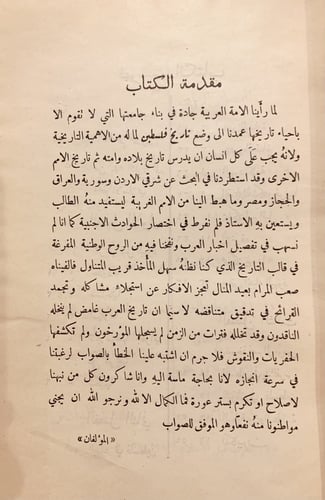 مقدمة الكتاب
لما رأينا الامة العربية جادة في بناء جامعتها التي لا تقوم الا
باحياء تاريخها عمدنا الى وضع تاريخ فلسطين لما له من الاهمية التاريخية
ولانه يجب على كل انسان ان يدرس تاريخ بلاده وامته ثم تاريخ الامم
الاخرى وقد استطردنا في البحث عن شرقي الاردن وسورية والعراق
والحجاز ومصر وما هبط الينا من الامم الغريبة ليستفيد منه الطالب
ويستعين به الاستاذ فلم نفرط في اختصار الحوادث الاجنبية كما انا لم
نسهب في تفصيل اخبار العرب ونفخنا فيه من الروح الوطنية المفرغة
في قالب التاريخ الذي كنا نظنه سهل المأخذ قريب المتناول فالفيناه
صعب المرام بعيد المنال تعجز الافكار عن استجلاء مشاكله وتجمد
القرائح في تدقيق متناقضه لاسيما ان تاريخ العرب غامض لم ينخله
الناقدون وقد تخلله فترات من الزمن لم يسجلها المؤرخون ولم تكشفها
الحفريات والنقوش فلا جرم ان اشتبه علينا الخطأ بالصواب لرغبتنا
في سرعة انجازه لانا بحاجة ماسة اليه وانا شاكرون كل من نبهنا
لاصلاح او تكرم بستر عورة فما الكمال الا لله ونرجو الله ان يجني
مواطنونا منه نفعاً وهو الموفق للصواب
«المؤلفان»